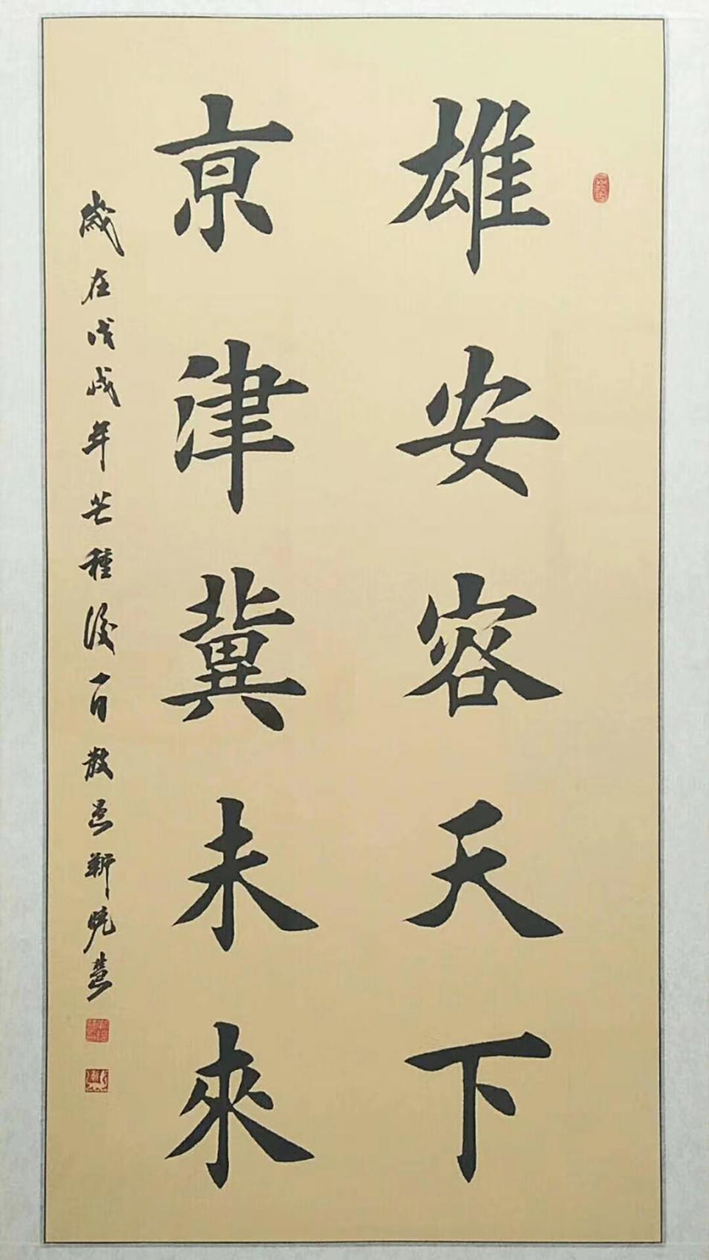 雄安容天下
京津冀未來
歲在戊戌年芒種後一百散邑靳曉慧